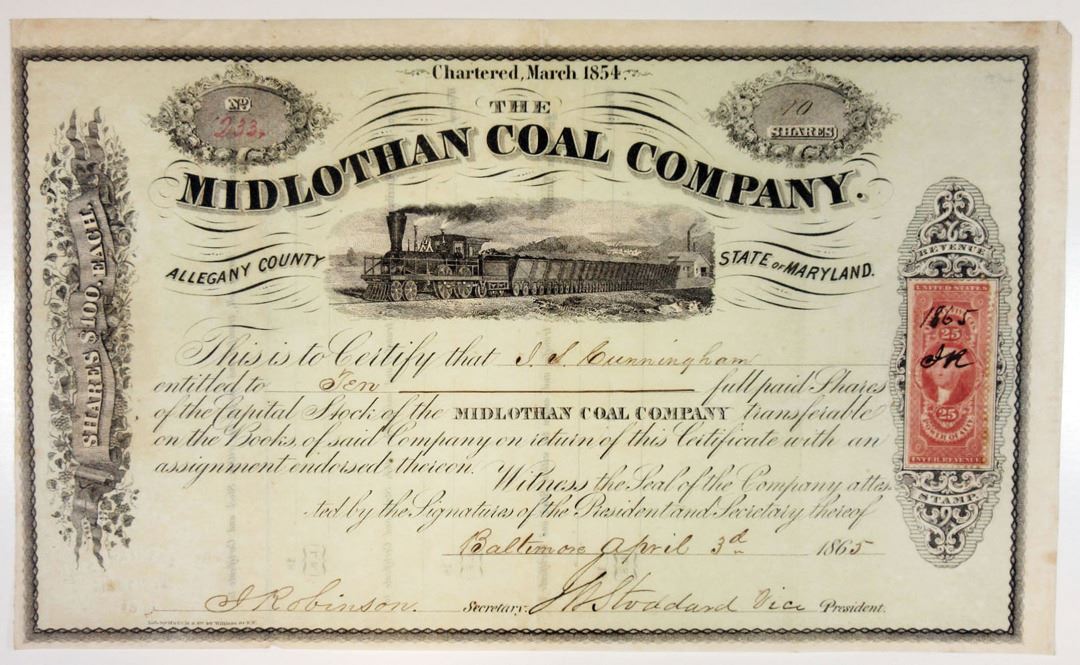 Chartered, March 1854.
No
233.
10
SHARES
THE
MIDLOTHAN COAL COMPANY.
ALLEGANY COUNTY
STATE OF MARYLAND.
SHARES $100, EACH.
REVENUE
UNITED STATES
1865
25
JR
25
POWER OF ATT'Y
INTER. REVENUE
STAMP.
This is to Certify that J. S. Cunningham
entitled to Ten full paid Shares
of the Capital Stock of the MIDLOTHAN COAL COMPANY transferable
on the Books of said Company on return of this Certificate with an
assignment endorsed thereon. Witness the Seal of the Company attes
ted by the Signatures of the President and Secretary thereof
Baltimore April 3d 1865
J Robinson. Secretary. Stoddard Vice President.